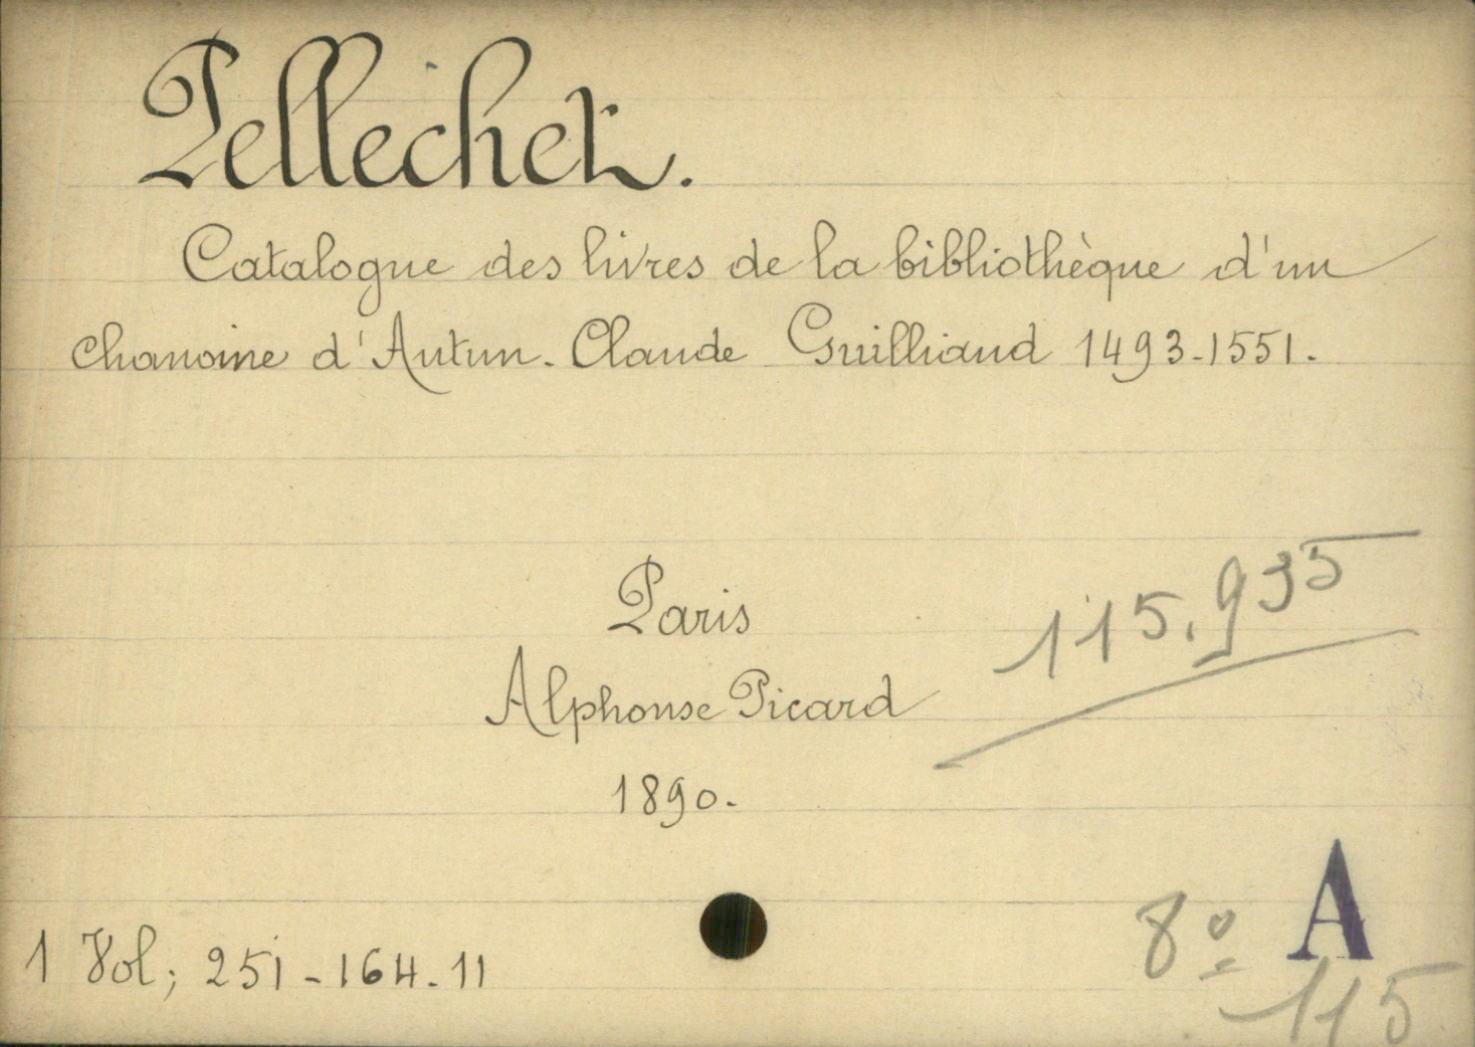 Pellechet.
Catalogue des livres de la bibliothèque d'un
chanoine d'Autun. Claude Guilliaud 1493-1551.
Paris
115.935
Alphonse Picard
1890.
8º A
1 Vol; 251-164.11
115